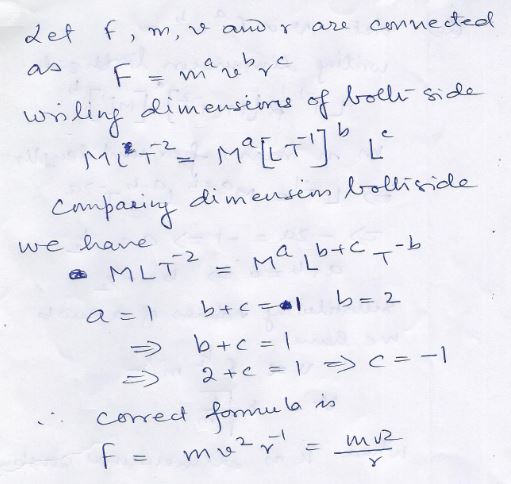 Let f, m, v and r are connected
as F = mᵃ vᵇ rᶜ
writing dimensions of both side
MLT⁻² = Mᵃ [LT⁻¹]ᵇ Lᶜ
Comparing dimension both side
we have
MLT⁻² = Mᵃ Lᵇ⁺ᶜ T⁻ᵇ
a = 1 b+c = 1 b = 2
⇒ b+c = 1
⇒ 2+c = 1 ⇒ c = -1
∴ correct formula is
f = mv² r⁻¹ = mv²/r